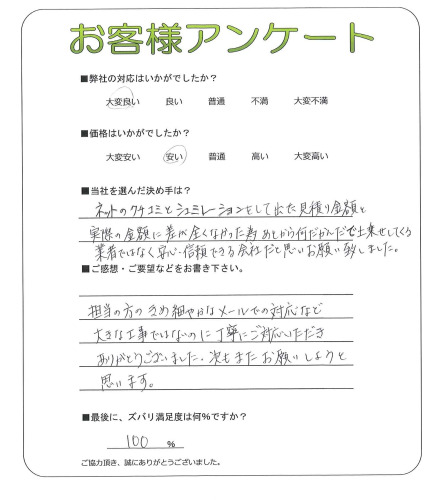 お客様アンケート
■弊社の対応はいかがでしたか？
大変良い 良い 普通 不満 大変不満
■価格はいかがでしたか？
大変安い 安い 普通 高い 大変高い
■当社を選んだ決め手は？
ネットのクチコミとシュミレーションをして出た見積り金額と
実際の金額に差が全くなかった為 あとから何だかんだで上乗せしてくる
業者ではなく安心・信頼できる会社だと思いお願い致しました。
■ご感想・ご要望などをお書き下さい。
担当の方のきめ細やかなメールでの対応など
大きな工事ではないのに丁寧にご対応いただき
ありがとうございました。次もまたお願いしようと
思います。
■最後に、ズバリ満足度は何％ですか？
100 %
ご協力頂き、誠にありがとうございました。